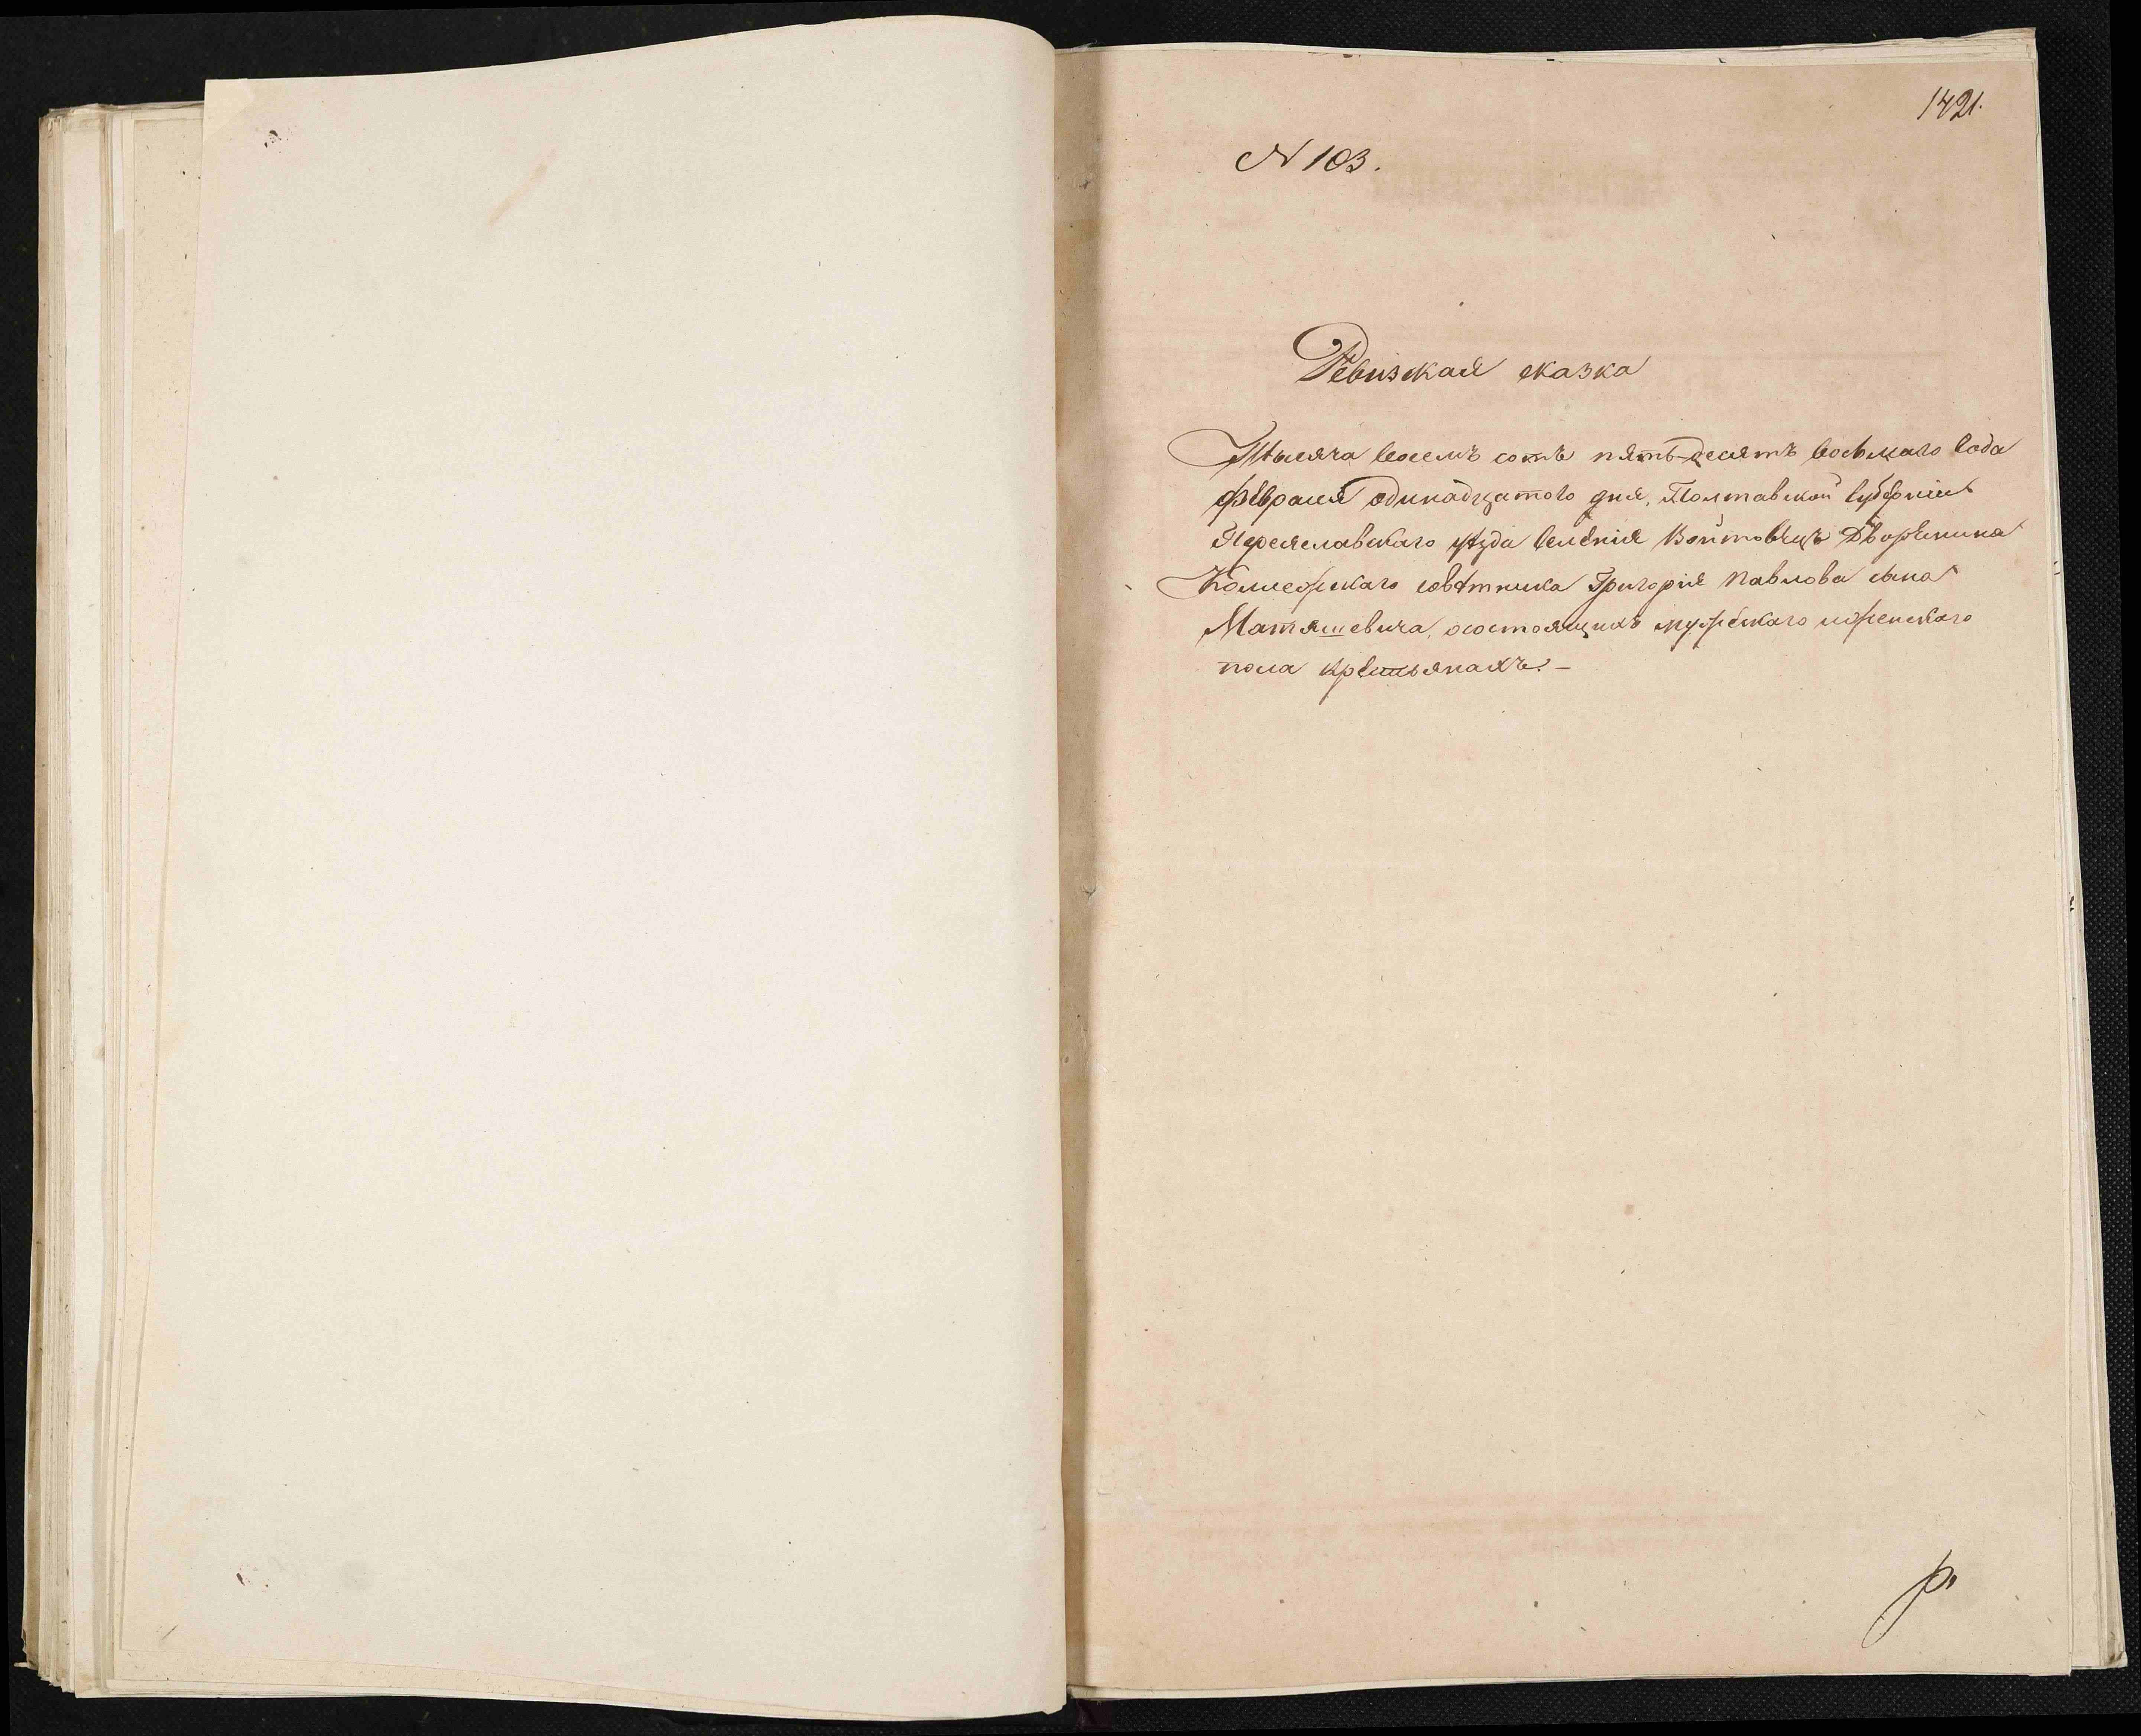 1421.
N 103.
Ревизская сказка
Тысяча восемъ сотъ пять-десятъ восьмаго года
февраля одинадцатого дня, Полтавской губерніи
Переяславскаго уѣзда селенія Войтовецъ Дворянина
Коллежскаго совѣтника Григорія Павлова сына
Матяшевича, осостоящихъ мужескаго иженскаго
пола крестьянахъ.-
р.